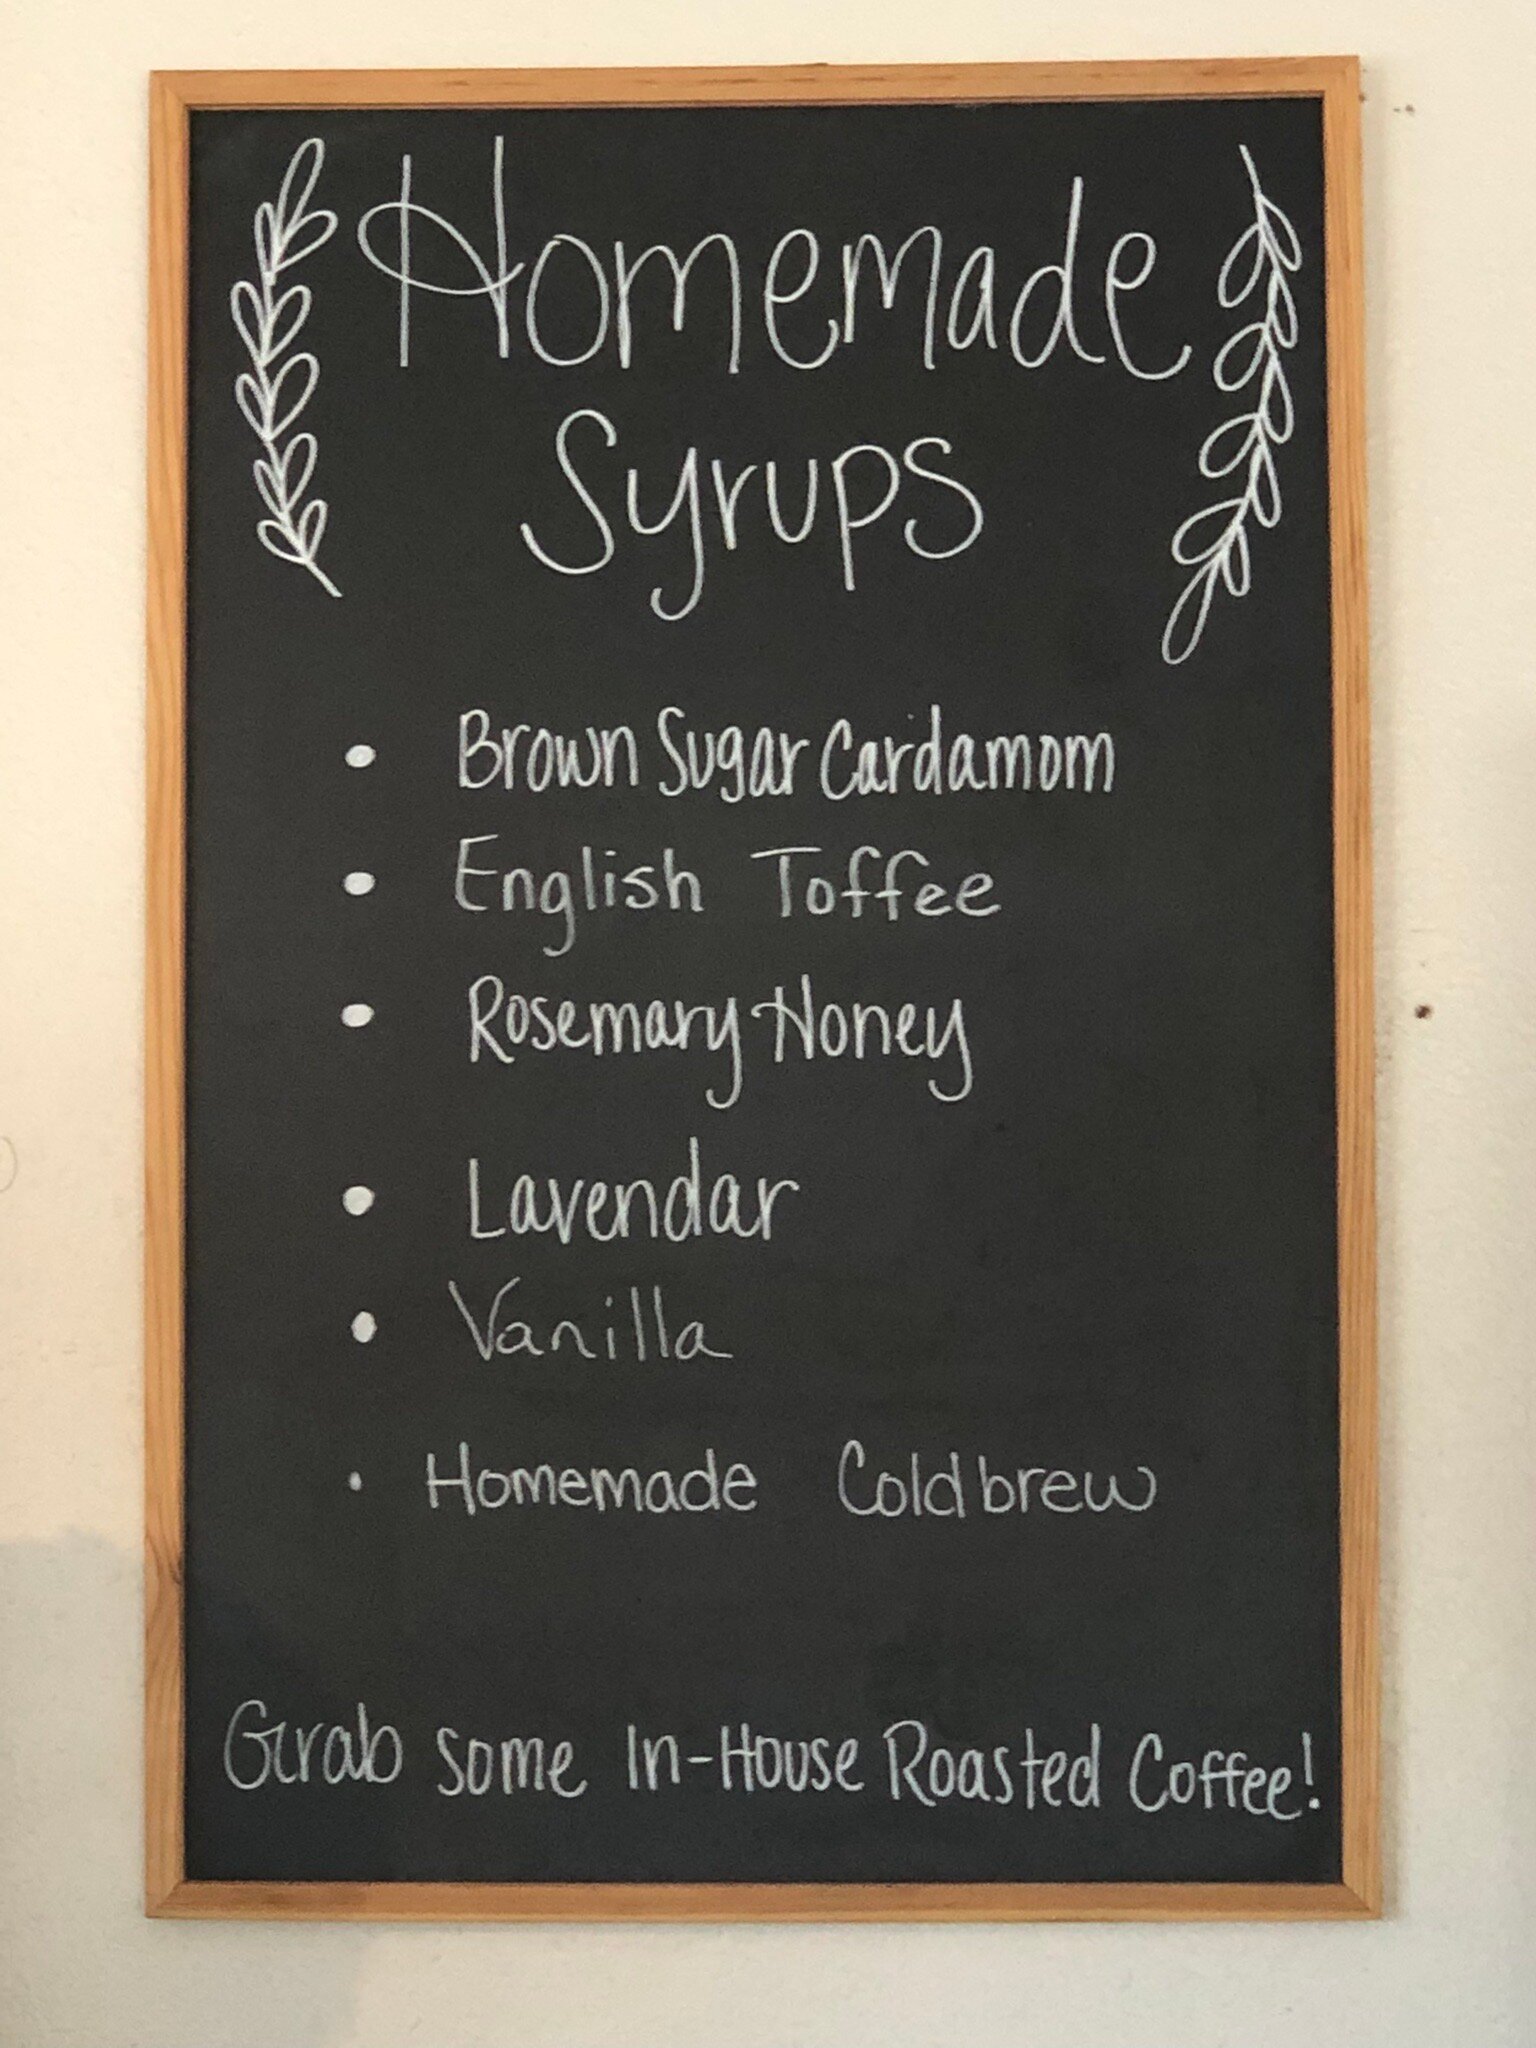 Homemade
Syrups
• Brown Sugar Cardamom
• English Toffee
• Rosemary Honey
• Lavendar
• Vanilla
• Homemade Coldbrew
Grab some In-House Roasted Coffee!